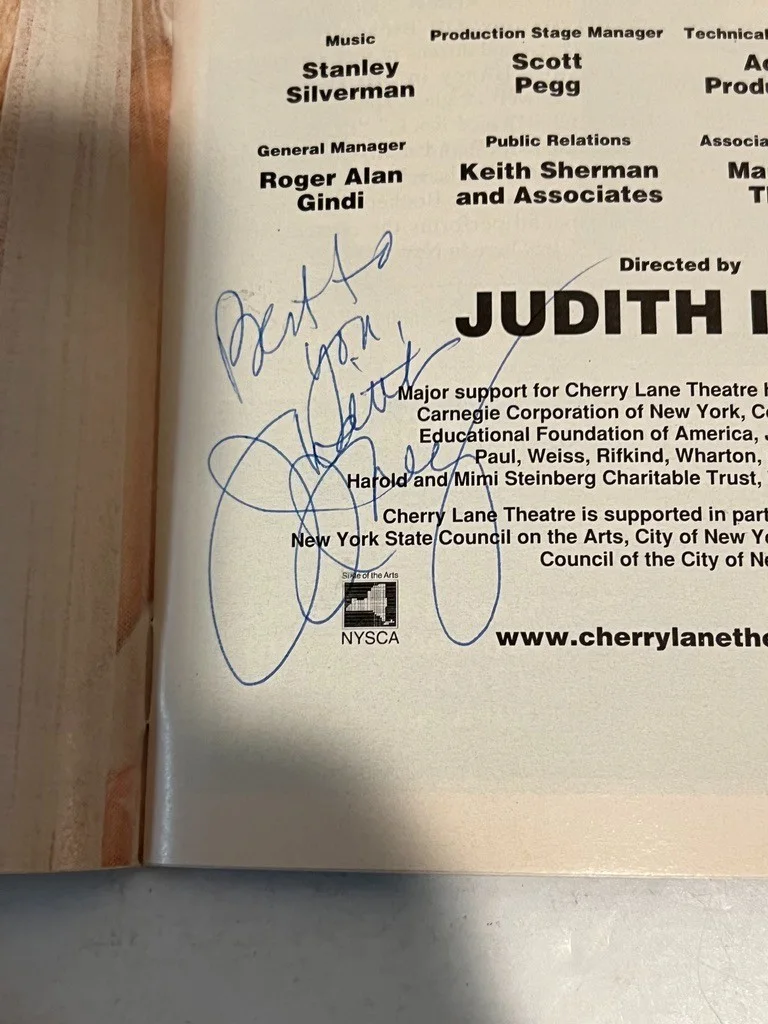 Music
Production Stage Manager
Technical
Stanley
Silverman
Scott
Pegg
Produ
General Manager
Public Relations
Associa
Roger Alan
Gindi
Keith Sherman
and Associates
Ma
Best to
you,
Directed by
JUDITH
Major support for Cherry Lane Theatre
Carnegie Corporation of New York,
Educational Foundation of America,
Paul, Weiss, Rifkind, Wharton,
Harold and Mimi Steinberg Charitable Trust,
Cherry Lane Theatre is supported in part
New York State Council on the Arts, City of New
Council of the City of
State of the Arts
NYSCA
www.cherrylanethe